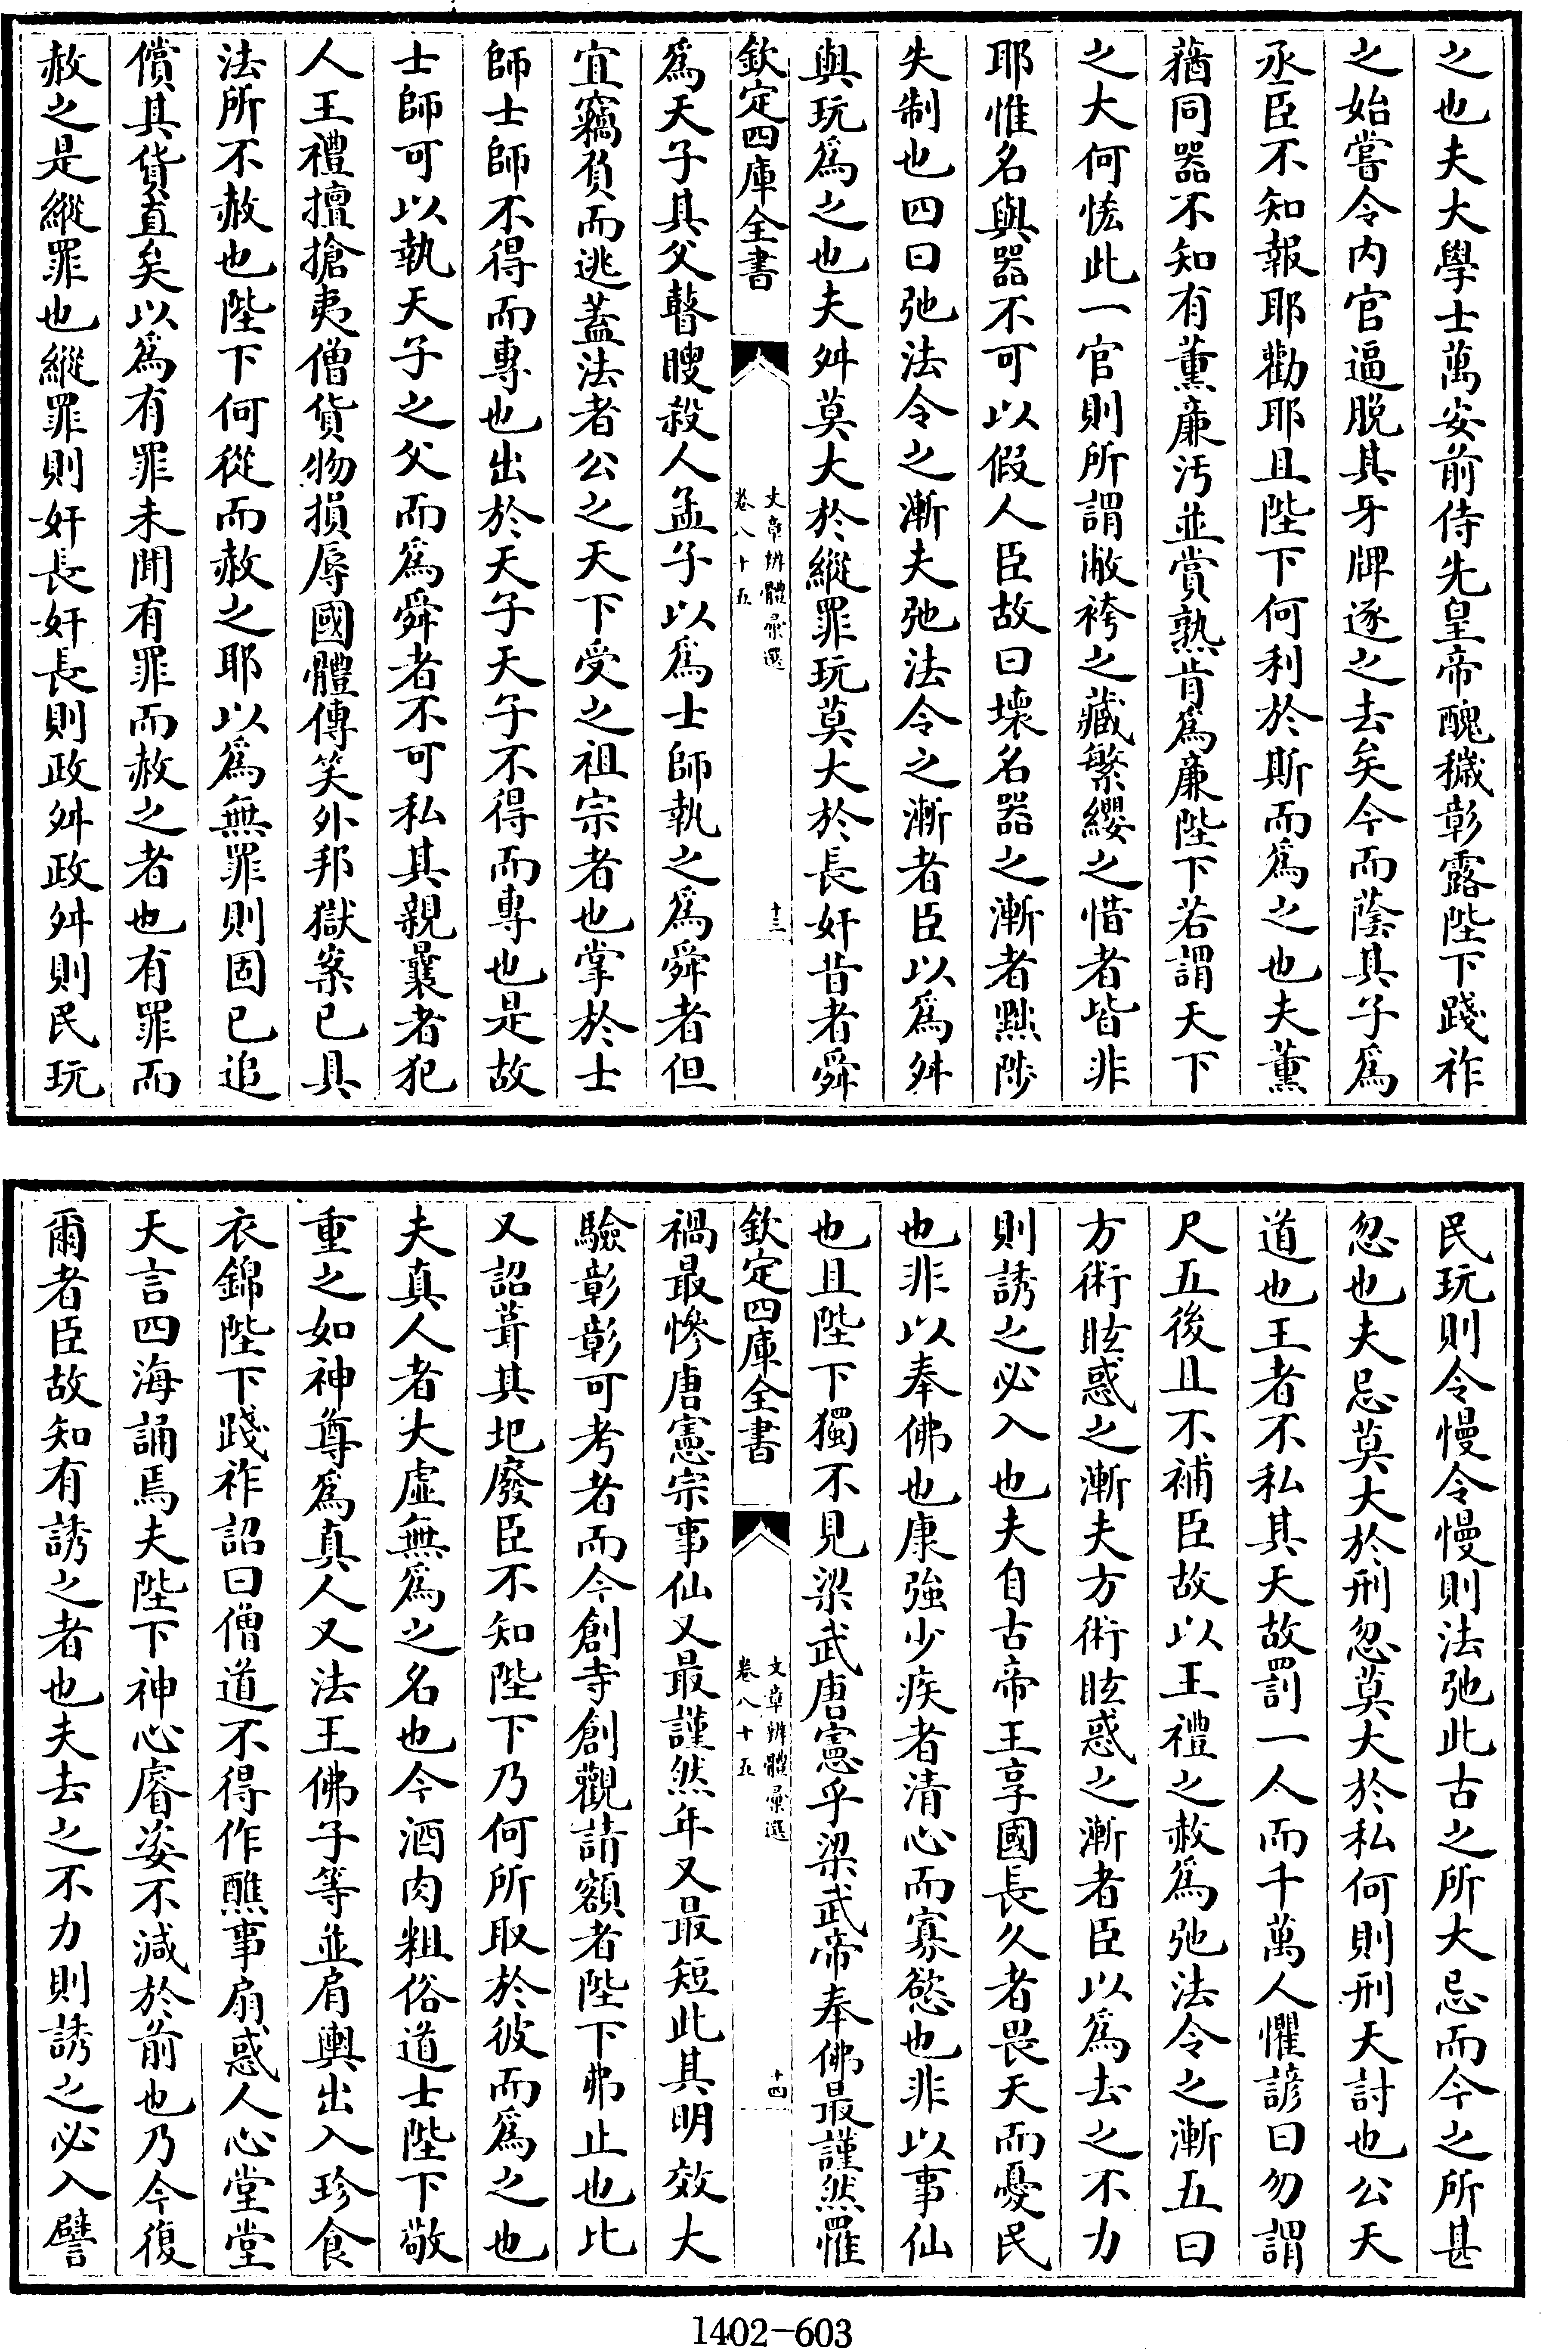 之也夫大學士萬安前侍先皇帝醜穢彰露陛下踐祚
之始嘗令内官逼脫其牙牌逐之去矣今而蔭其子為
丞臣不知報耶勸耶且陛下何利於斯而為之也夫薰
蕕同器不知有薰亷汚並賞熟肯為亷陛下若謂天下
之大何恡此一官則所謂敝袴之藏繁纓之惜者皆非
耶惟名與器不可以假人臣故曰壊名器之漸者黜陟
失制也四曰弛法令之漸夫弛法令之漸者臣以為舛
與玩為之也夫舛莫大於縱罪玩莫大於長奸昔者舜
欽定四庫全書
文章辨體彙選
卷八十五
十三
為天子其父瞽瞍殺人孟子以為士師執之為舜者但
宜竊負而逃蓋法者公之天下受之祖宗者也掌於士
師士師不得而專也出於天子天子不得而專也是故
士師可以執天子之父而為舜者不可私其親曩者犯
人王禮擅搶夷僧貨物損辱國體傳笑外邦獄案已具
法所不赦也陛下何從而赦之耶以為無罪則固已追
償其貨直矣以為有罪未聞有罪而赦之者也有罪而
赦之是縱罪也縱罪則奸長奸長則政舛政舛則民玩
民玩則令慢令慢則法弛此古之所大忌而今之所甚
忽也夫忌莫大於刑忽莫大於私何則刑天討也公天
道也王者不私其天故罰一人而千萬人懼諺曰勿謂
尺五後且不補臣故以王禮之赦為弛法令之漸五曰
方術眩惑之漸夫方術眩惑之漸者臣以為去之不力
則誘之必入也夫自古帝王享國長久者畏天而憂民
也非以奉佛也康強少疾者清心而寡慾也非以事仙
也且陛下獨不見梁武唐憲乎梁武帝奉佛最謹然罹
欽定四庫全書
文章辨體彙選
卷八十五
十四
禍最慘唐憲宗事仙又最謹然年又最短此其明效大
驗彰彰可考者而今創寺創觀請額者陛下弗止也比
又詔葺其圯廢臣不知陛下乃何所取於彼而為之也
夫真人者大虛無為之名也今酒肉粗俗道士陛下敬
重之如神尊為真人又法王佛子等並肩輿出入珍食
衣錦陛下踐祚詔曰僧道不得作醮事扇惑人心堂堂
天言四海誦焉夫陛下神心睿姿不減於前也乃今復
爾者臣故知有誘之者也夫去之不力則誘之必入譬
1402-603